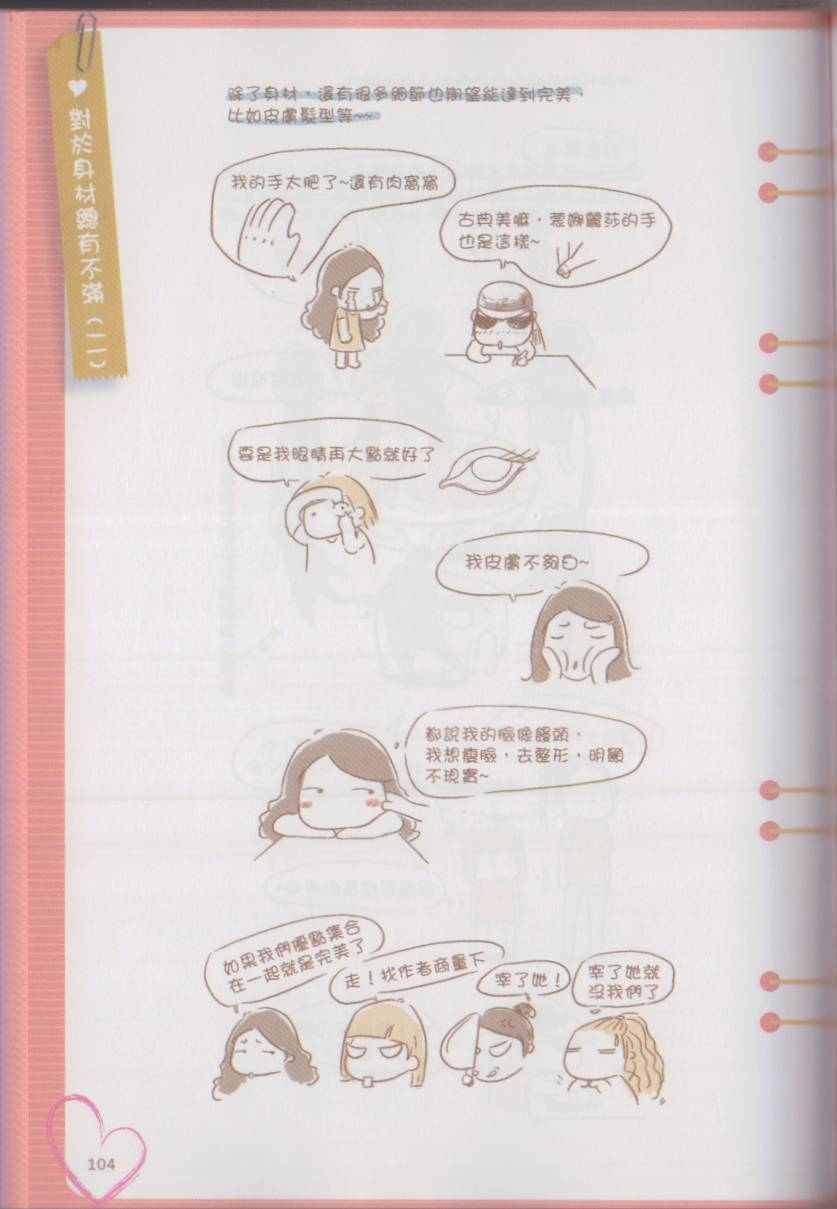 ♥ 對於身材總有不滿（二）
除了身材，還有很多細節也期望能達到完美，
比如皮膚髮型等~~
我的手太肥了~還有肉窩窩
古典美嘛，蒙娜麗莎的手
也是這樣~
要是我眼睛再大點就好了
我皮膚不夠白~
都說我的臉像饅頭，
我想瘦臉，去整形，明顯
不現實~
如果我們優點集合
在一起就是完美了
走！找作者商量下
宰了她！
宰了她就
沒我們了
104